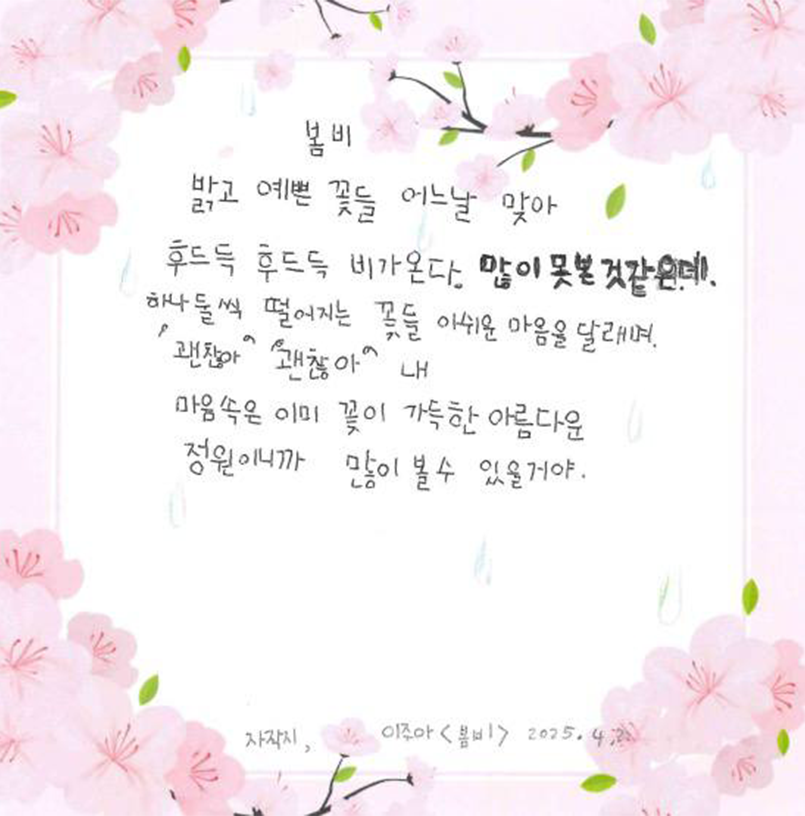 봄비
밝고 예쁜 꽃들 어느날 맞아
후드득 후드득 비가온다. 많이 못본것같은데.
하나둘씩 떨어지는 꽃들 아쉬운 마음을 달래며.
"괜찮아" "괜찮아" 내
마음속은 이미 꽃이 가득한 아름다운
정원이니까 많이 볼수 있을거야.
자작시, 이주아 <봄비> 2025.4.